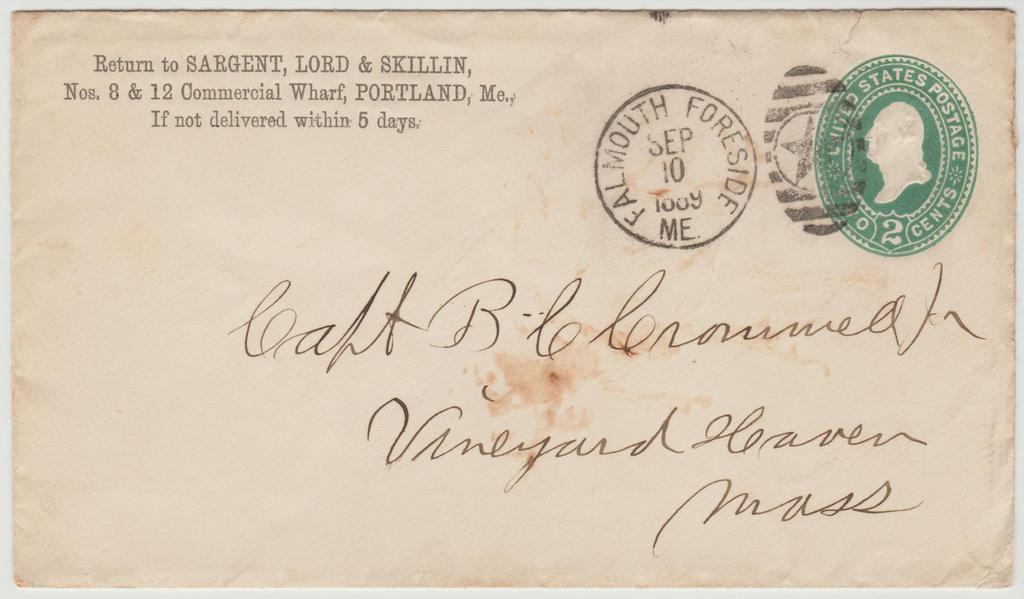 Return to SARGENT, LORD & SKILLIN,
Nos. 8 & 12 Commercial Wharf, PORTLAND, Me.,
If not delivered within 5 days.
FALMOUTH FORESIDE
SEP
10
1889
ME.
UNITED STATES POSTAGE
2 CENTS
Capt B. C Cromwell Jr
Vineyard Haven
Mass